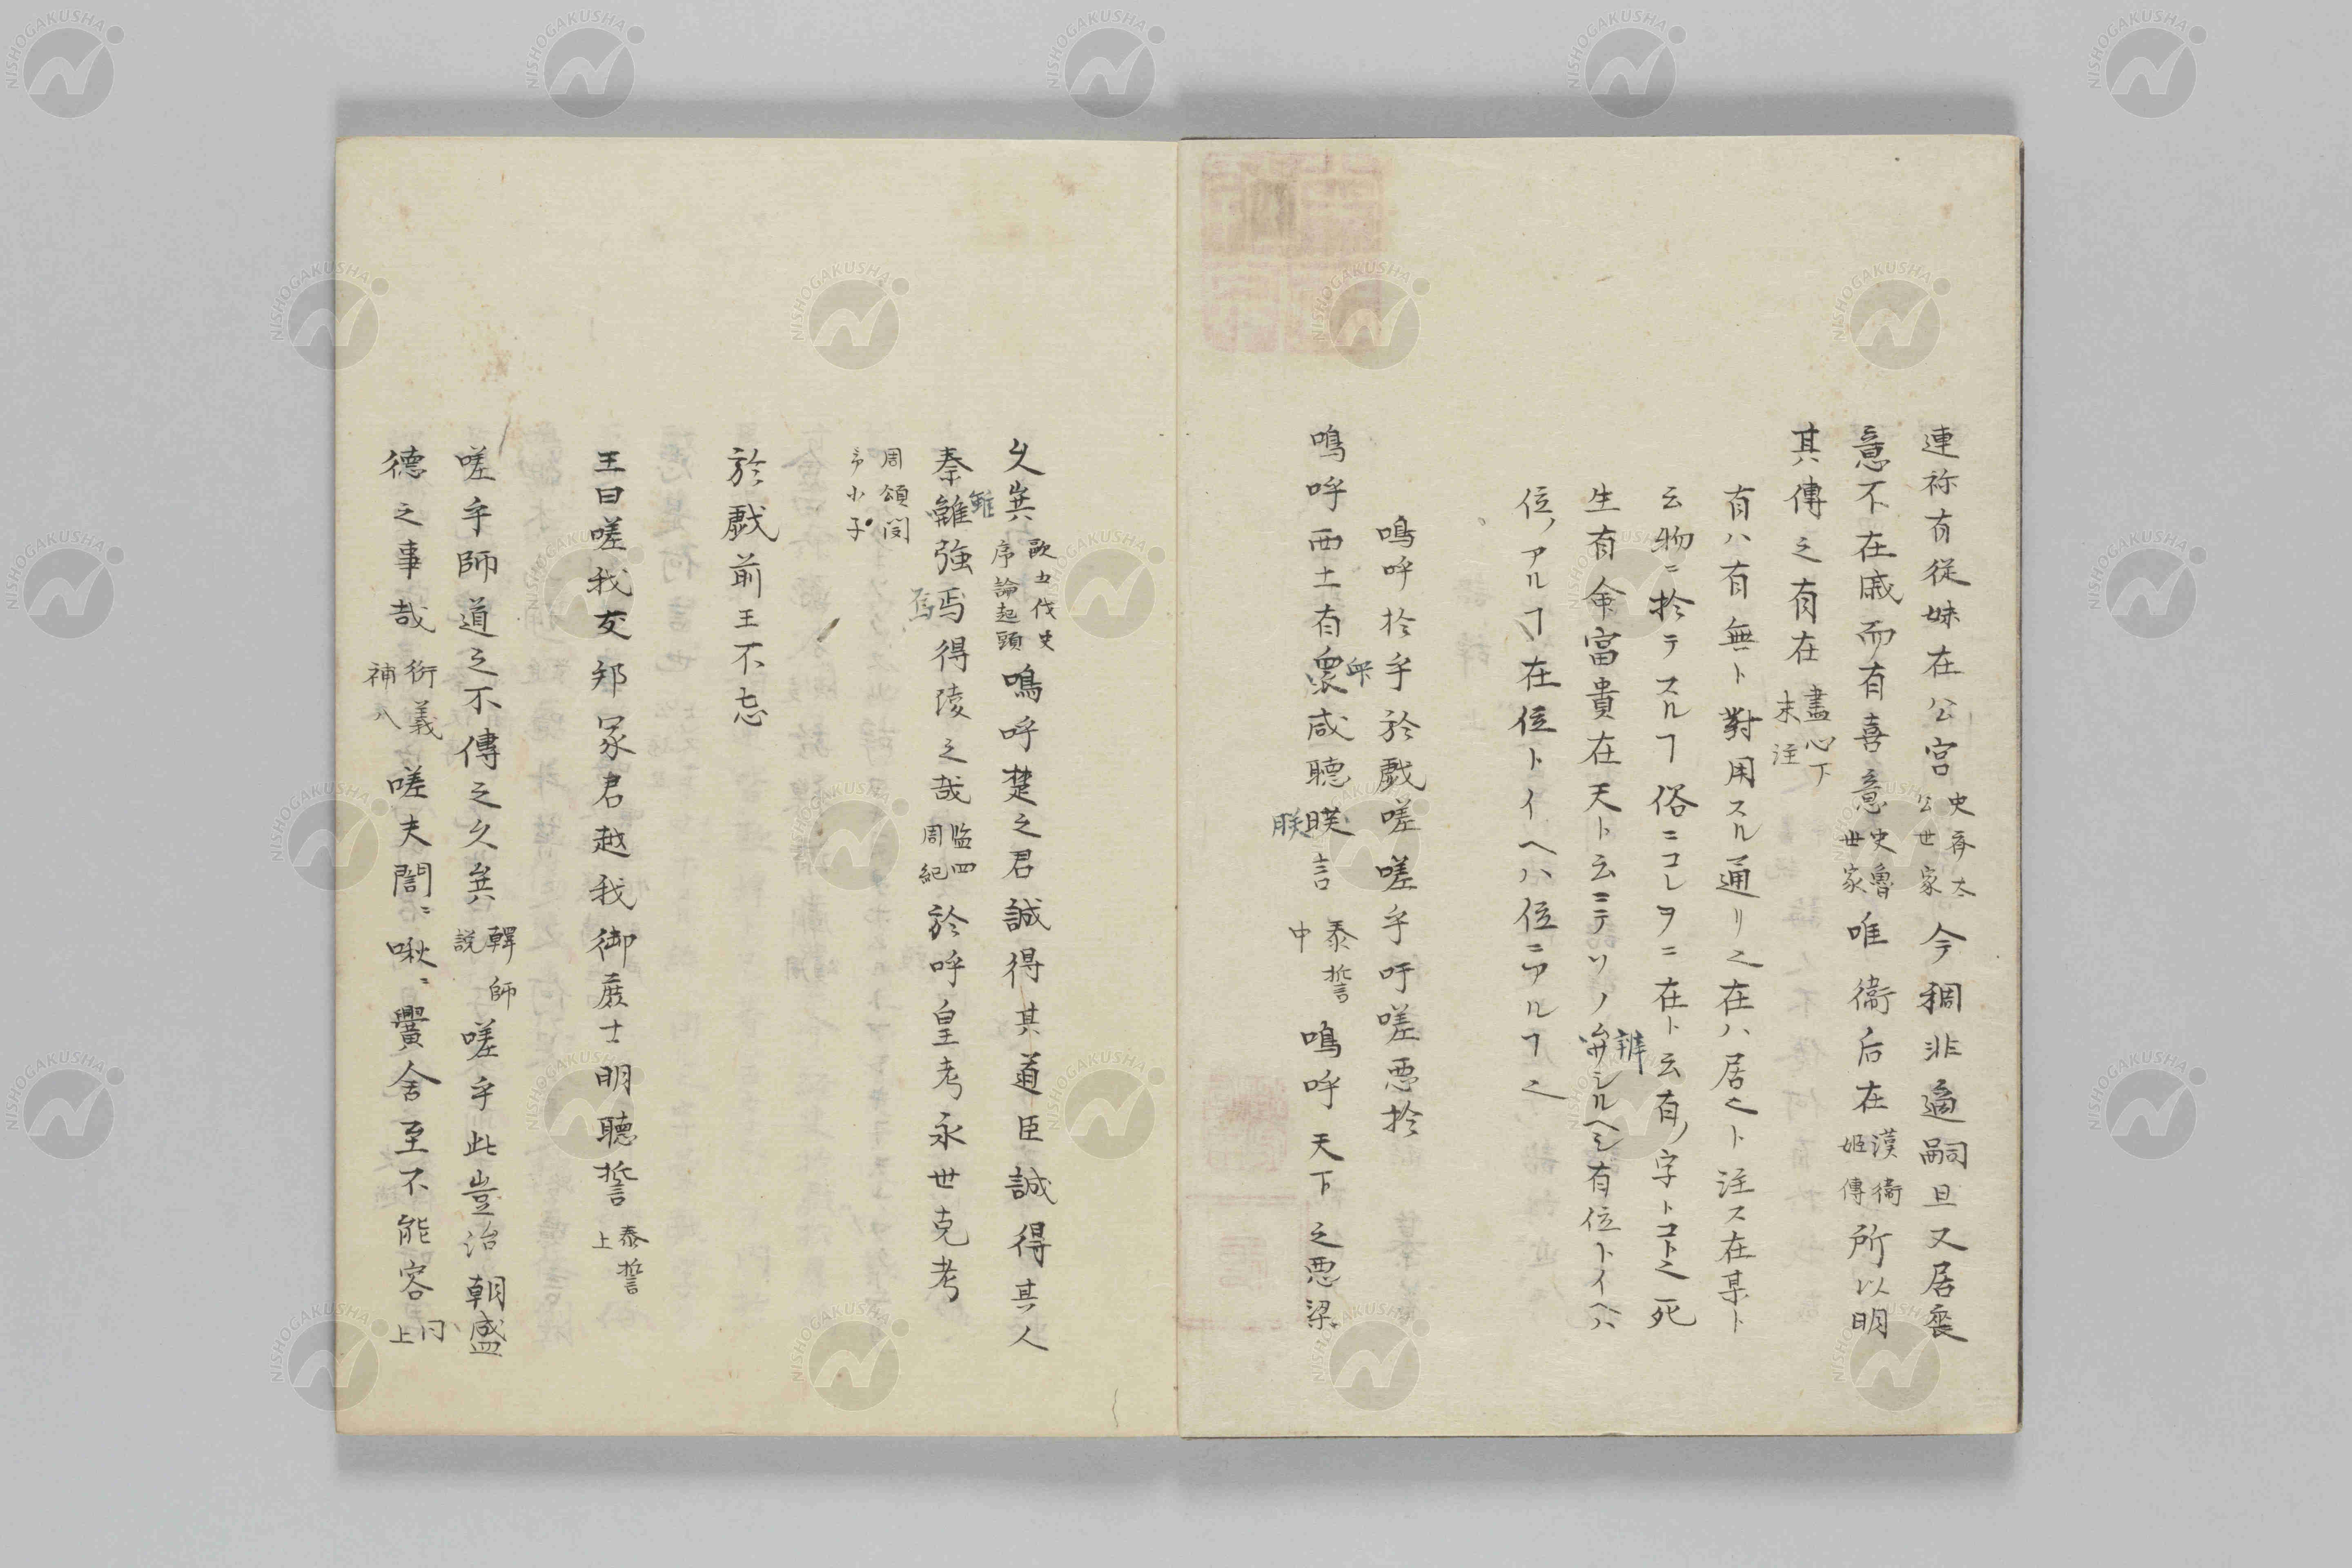 連称有従妹在公宮 史斉太公世家 今稠非適嗣且又居喪
意不在戚而有喜意 史魯世家 唯衛后在 漢衛姬傳 所以明
其傳之有在 盡心下末注
有ハ有無ト對用スル通リ之在ハ居之ト注ス在某ト
云物ニ於テスルヿ俗ニコレヲニ在ト云有ノ字トコト之死
生有命富貴在天ト云ニテソノ辨シルヘシ有位トイヘハ
位ノアルヿ在位トイヘハ位ニアルヿ之
嗚呼於乎於戯嗟嗟乎吁嗟悪於
嗚呼西土有衆咸聴朕言 泰誓中 嗚呼天下之悪梁
久矣 歐五代史序論起頭 嗚呼楚之君誠得其道臣誠得其人
秦雖強焉得陵之哉 監四周紀 於呼皇考永世克考
周頌閔予小子
於戯前王不忘
王曰嗟我友邦冢君越我御庶士明聴誓 泰誓上
嗟乎師道之不傳之久矣 韓師説 嗟乎此豈治朝盛
德之事哉 衍義補八 嗟夫誾〻啾〻黌舎至不能容 同上